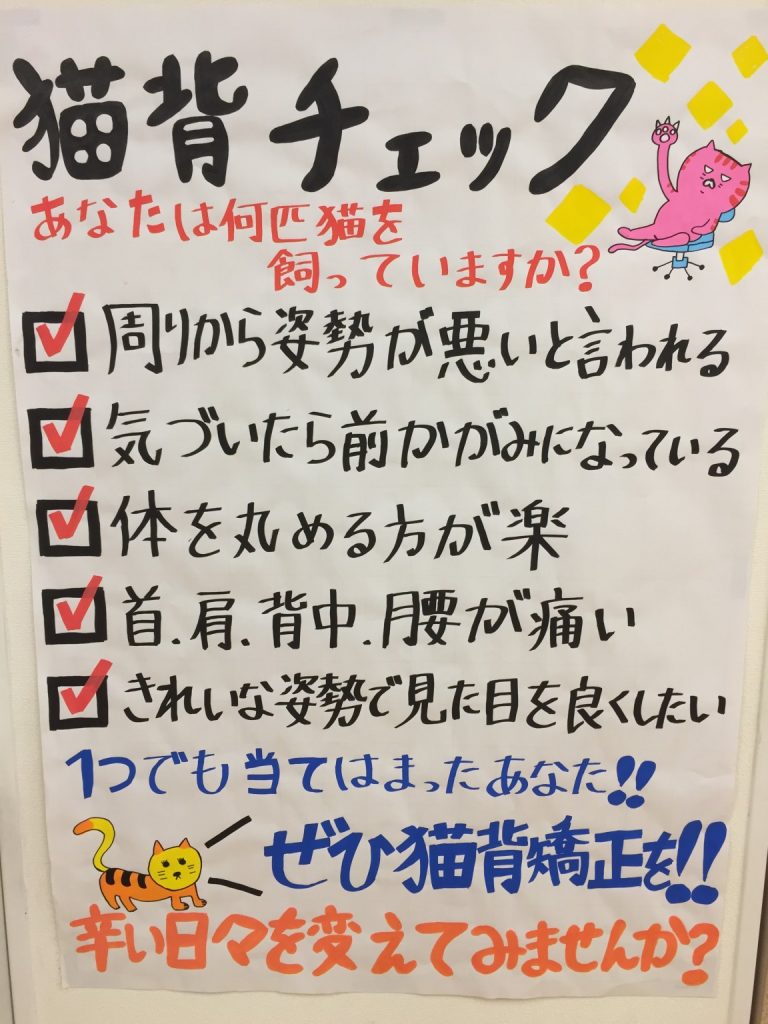 猫背チェック
あなたは何匹猫を
飼っていますか?
周りから姿勢が悪いと言われる
気づいたら前かがみになっている
体を丸める方が楽
首、肩、背中、腰が痛い
きれいな姿勢で見た目を良くしたい
1つでも当てはまったあなた!!
ぜひ猫背矯正を!!
辛い日々を変えてみませんか?